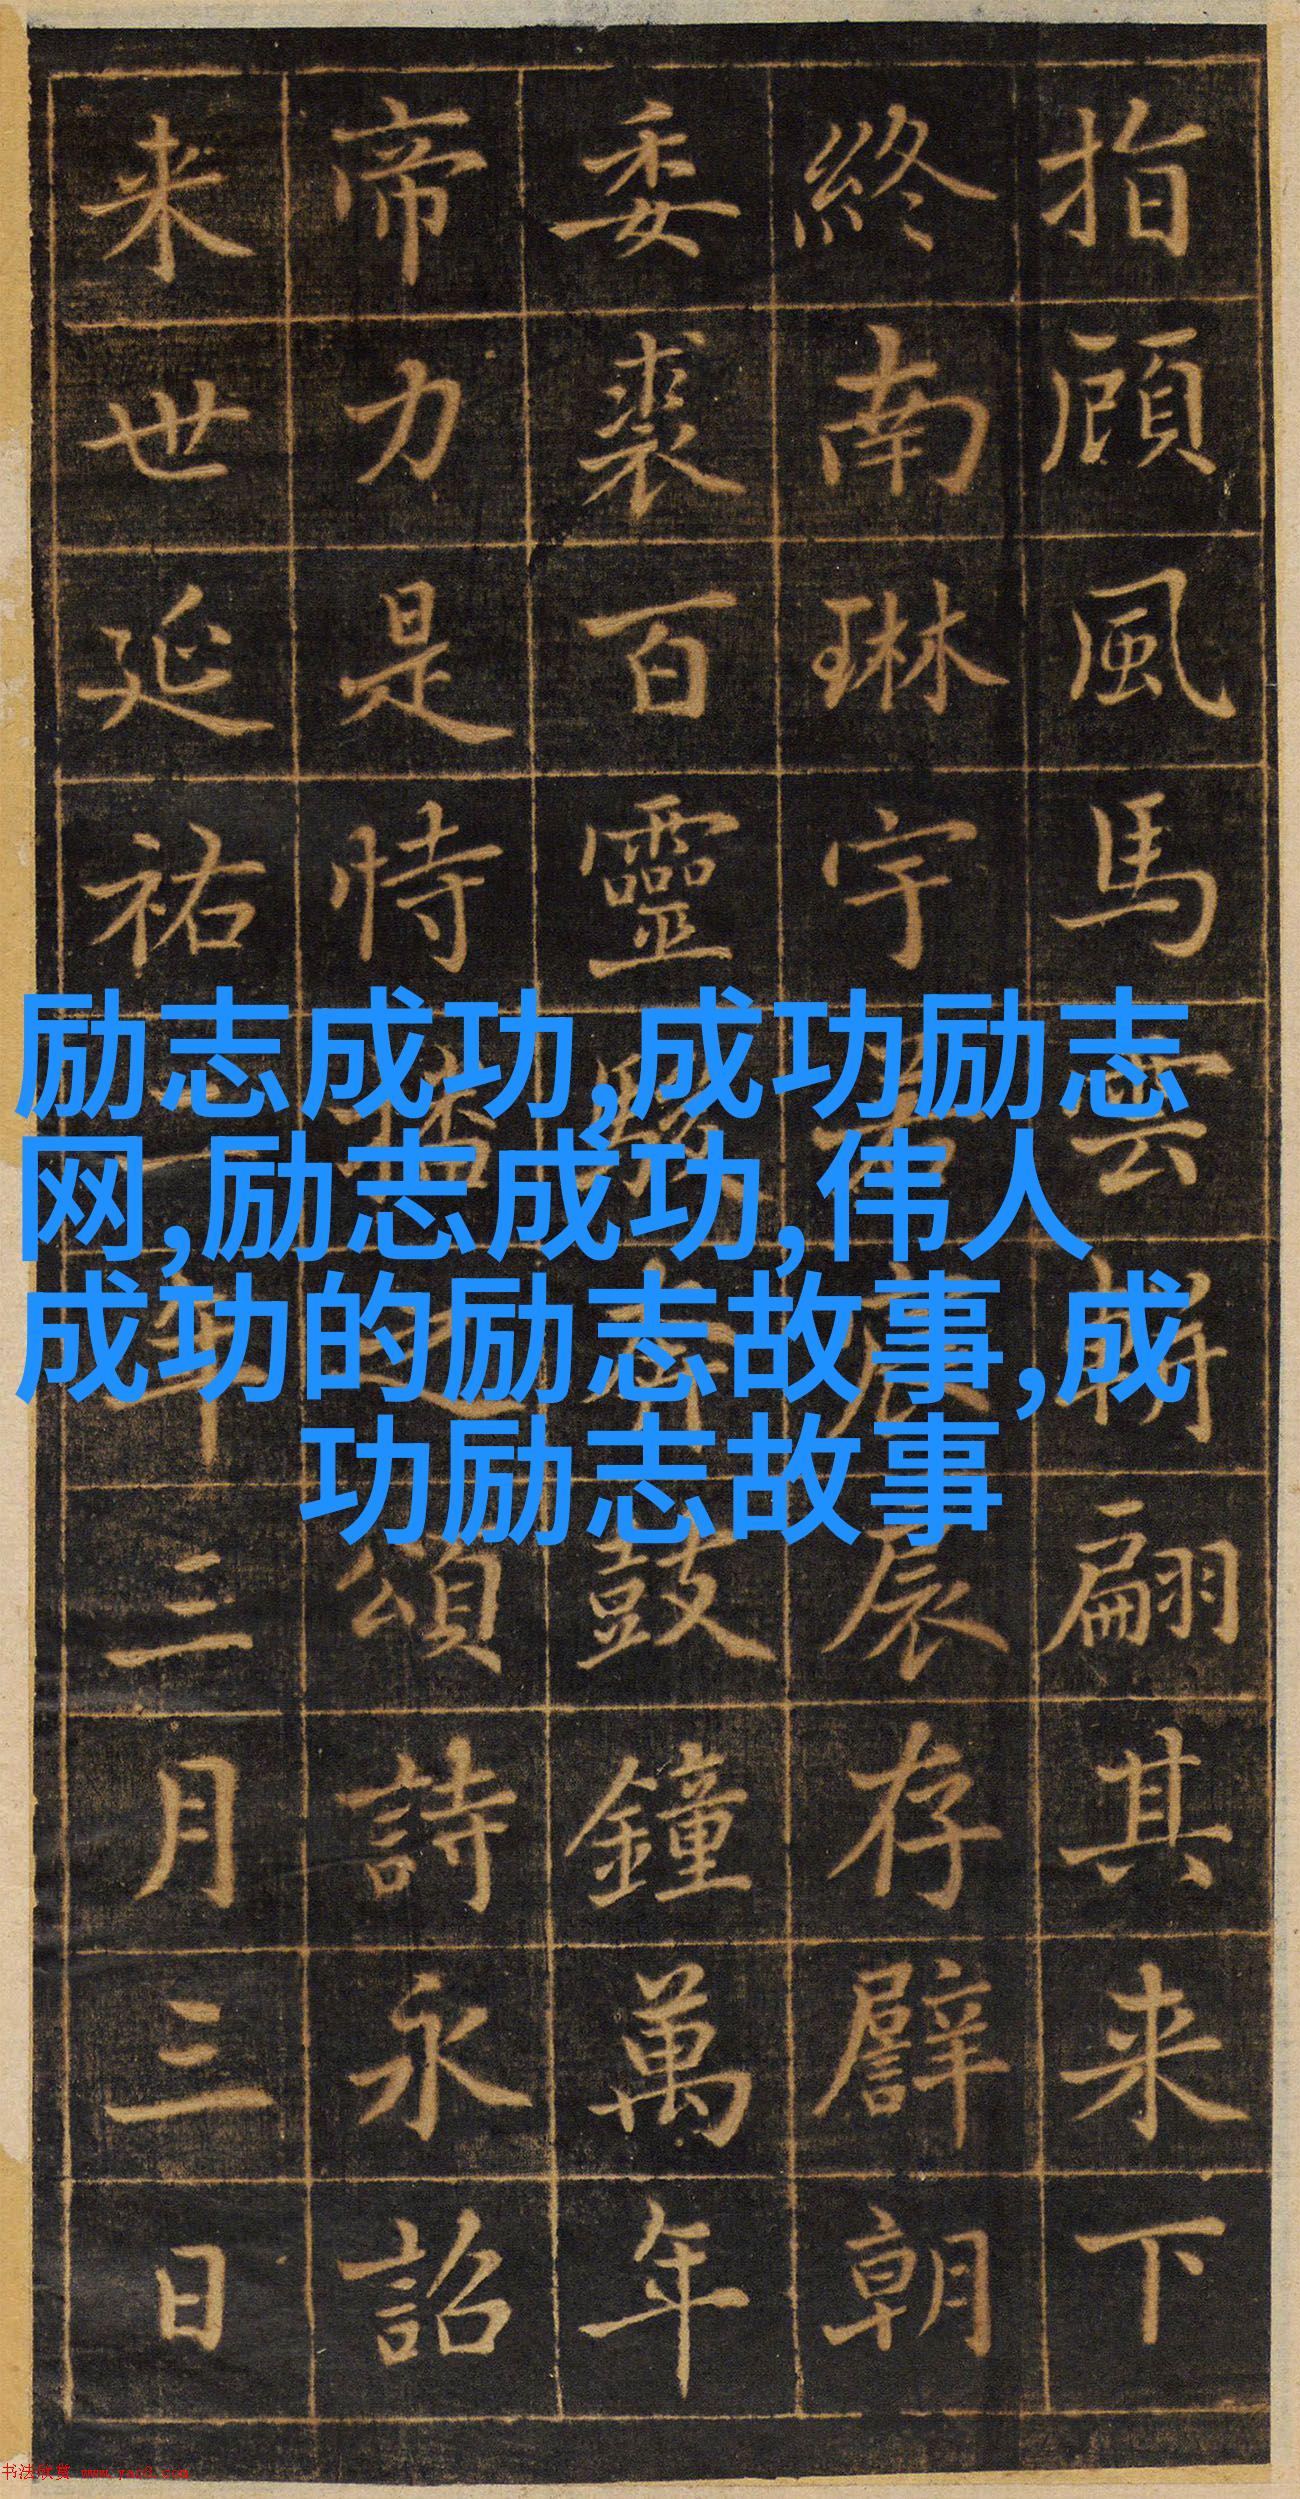 指顧風馬雲軿翩其来下
終南琳宇扆存譬朝
委裘百靈駿奔鼓鐘萬年
帝力是恃播之頌詩永詔
来世延祐年三月三日
励志成功,成功励志
网,励志成功,伟人
成功的励志故事,成
功励志故事
书法欣赏 www.yac8.com